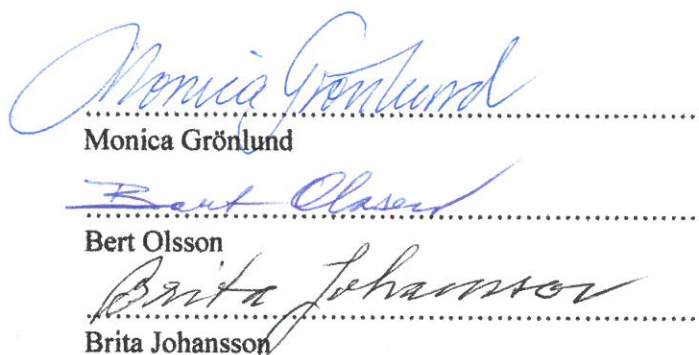 Monica Grönlund
Monica Grönlund
Bert Olsson
Bert Olsson
Brita Johansson
Brita Johansson